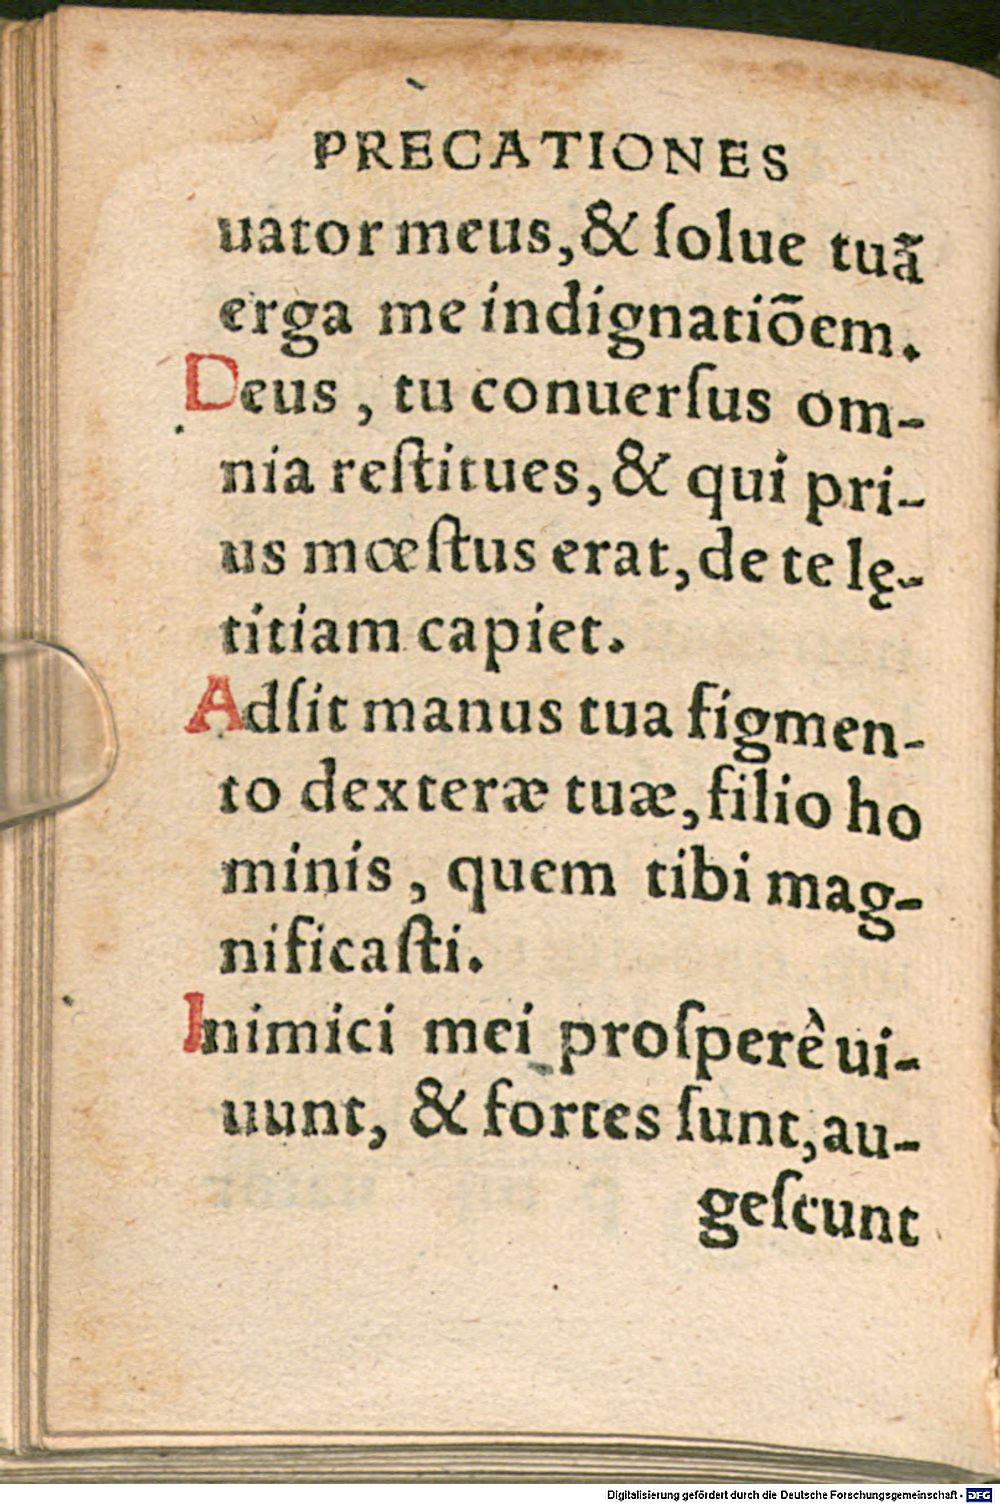 PRECATIONES
uator meus, & ſolue tuã
erga me indignatiõem.
Deus, tu conuerſus om-
nia reſtitues, & qui pri-
us mœſtus erat, de te lę-
titiam capiet.
Adſit manus tua figmen-
to dexteræ tuæ, filio ho
minis, quem tibi mag-
nificaſti.
Inimici mei proſperê ui-
uunt, & fortes ſunt, au-
geſcunt
Digitalisierung gefördert durch die Deutsche Forschungsgemeinschaft - DFG